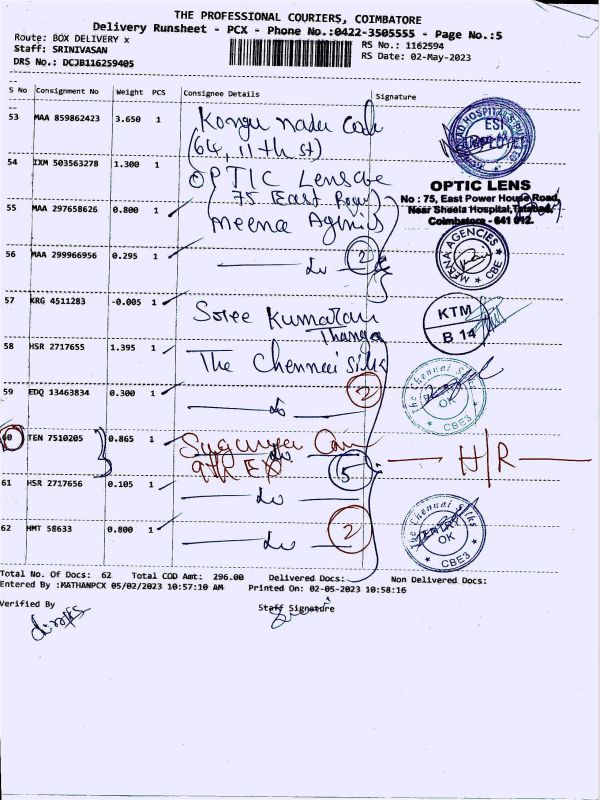 THE PROFESSIONAL COURIERS, COIMBATORE
Delivery Runsheet - PCX - Phone No.:0422-3505555 - Page No.:5
Route: BOX DELIVERY x
RS No.: 1162594
Staff: SRINIVASAN
RS Date: 02-May-2023
DRS No.: DCJB116259405
S No Consignment No Weight PCS Consignee Details Signature
53 MAA 859862423 3.650 1 Kongu nadu
(64, 11th st)
ESI
54 IXM 503563278 1.300 1 OPTIC
(75 East
OPTIC LENS
No : 75, East Power House Road,
Near Sheela Hospital, Tatabad,
Coimbatore - 641 012.
55 MAA 297658626 0.800 1 meena
MEENA AGENCIES
CBE
56 MAA 299966956 0.295 1 2
57 KRG 4511283 -0.005 1 Sree Kumaran
Thanga
KTM
B 14
58 HSR 2717655 1.395 1 The Chennai Silks
The Chennai Silks
OK
CBE3
59 EDQ 13463834 0.300 1 do 2
60 TEN 7510205 0.865 1
H/R
5
61 HSR 2717656 0.105 1 do
62 HMT 58633 0.800 1 do 2
The Chennai Silks
OK
CBE3
Total No. Of Docs: 62 Total COD Amt: 296.00 Delivered Docs: Non Delivered Docs:
Entered By :MATHANPCX 05/02/2023 10:57:10 AM Printed On: 02-05-2023 10:58:16
Verified By Staff Signature